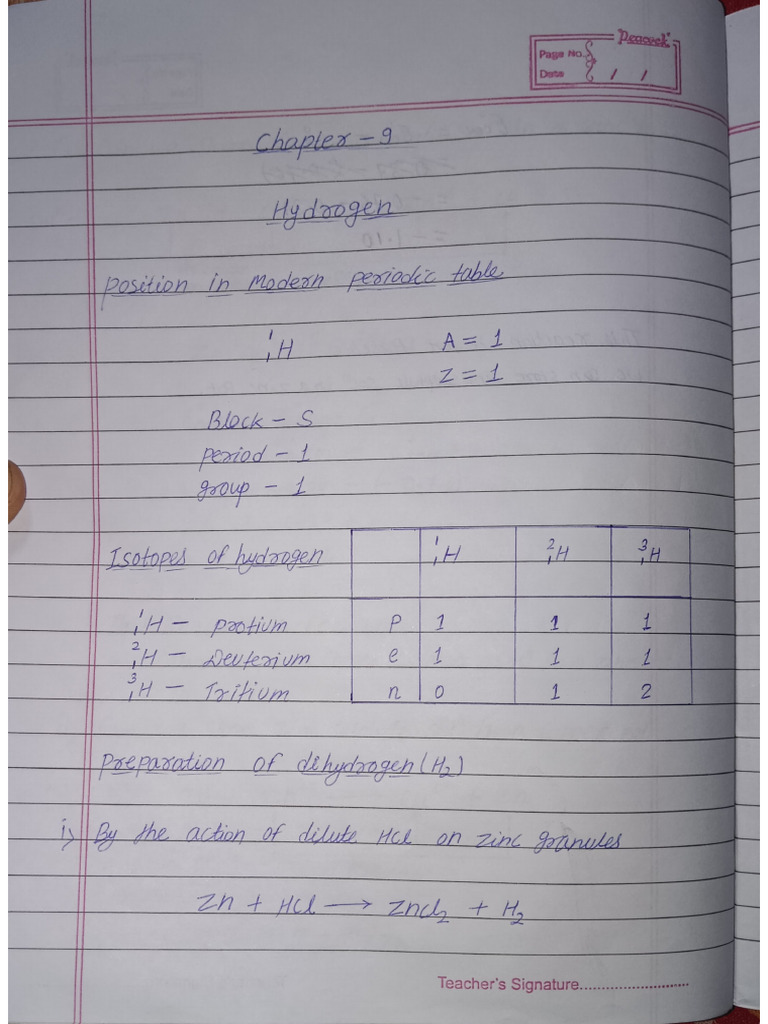 Peacock
Page No.
Date / /
Chapter - 9
Hydrogen
Position in Modern periodic table
¹₁H A = 1
Z = 1
Block - S
period - 1
group - 1
Isotopes of hydrogen
¹₁H ²₁H ³₁H
¹₁H - protium P 1 1 1
²₁H - Deuterium e 1 1 1
³₁H - Tritium n 0 1 2
Preparation of dihydrogen (H₂)
i) By the action of dilute HCl on zinc granules
Zn + HCl → ZnCl₂ + H₂
Teacher's Signature..........................